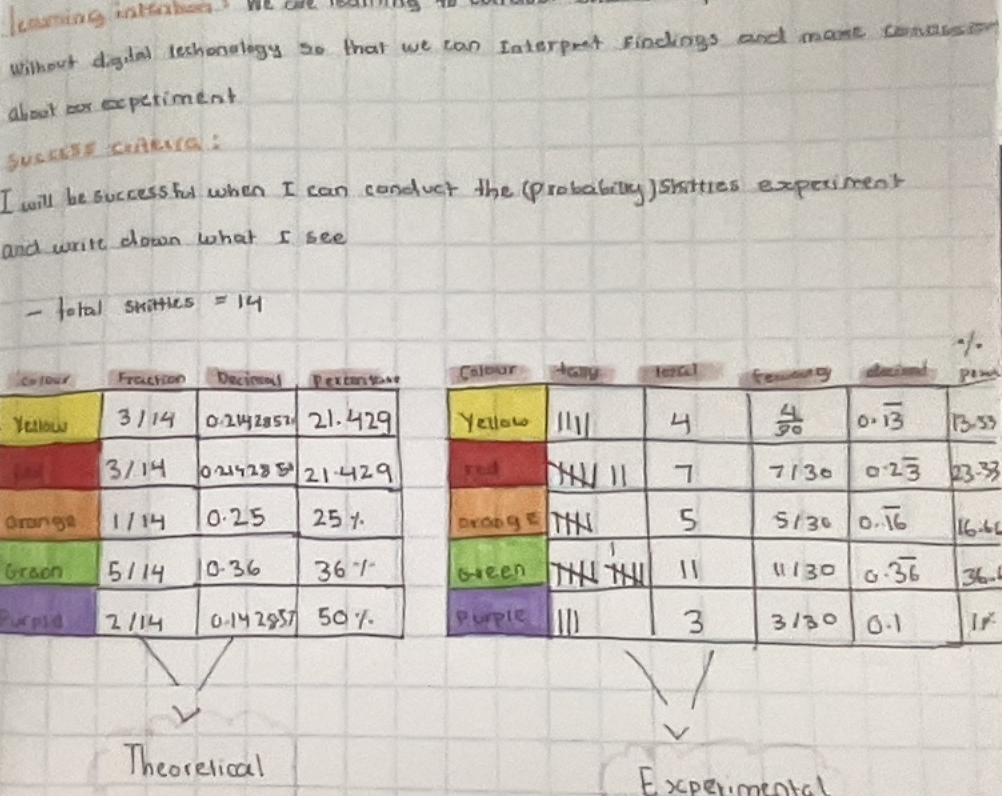 learning intention: We are learning to
without digital techonology so that we can Interpret Findings and make
about our experiment
success criteria:
I will be successful when I can conduct the (Probability) Skittles experiment
and write down what I see
- total skittles = 14
Colour Fraction Decimal Percentage
Yellow 3/14 0.2142857 21.429
Red 3/14 0.2142857 21.429
Orange 1/14 0.25 25%
Green 5/14 0.36 36%
Purple 2/14 0.142857 50%
Theoretical
%
Colour tally total decimal
Yellow |||| 4 4/30 0.1̅3̅ 13.33
red 7 7/30 0.23̅ 23.33
orange 5 5/30 0.1̅6̅ 16.66
Green 11 11/30 0.3̅6̅ 36.6
Purple ||| 3 3/30 0.1
Experimental